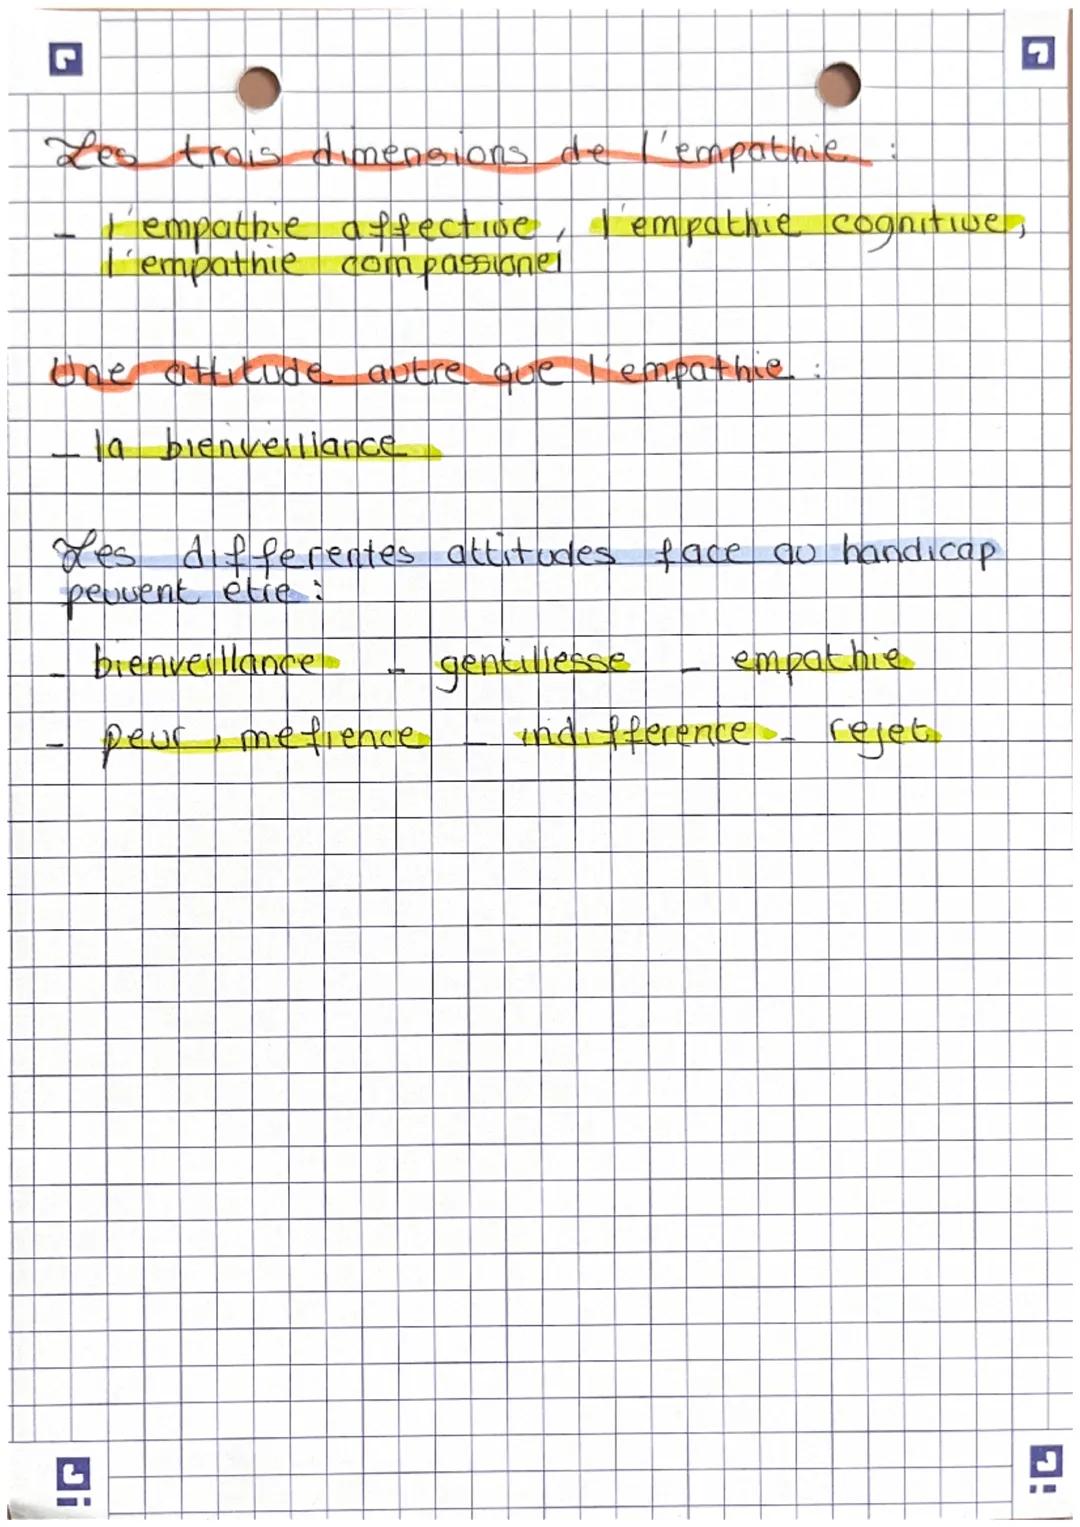 Les trois dimensions de l'empathie :
- l'empathie affective, l'empathie cognitive,
l'empathie compassionel
Une attitude autre que l'empathie :
- la bienveillance
Les differentes attitudes face au handicap
peuvent etre :
- bienveillance - gentillesse - empathie
- peur, mefience - indifference - rejet